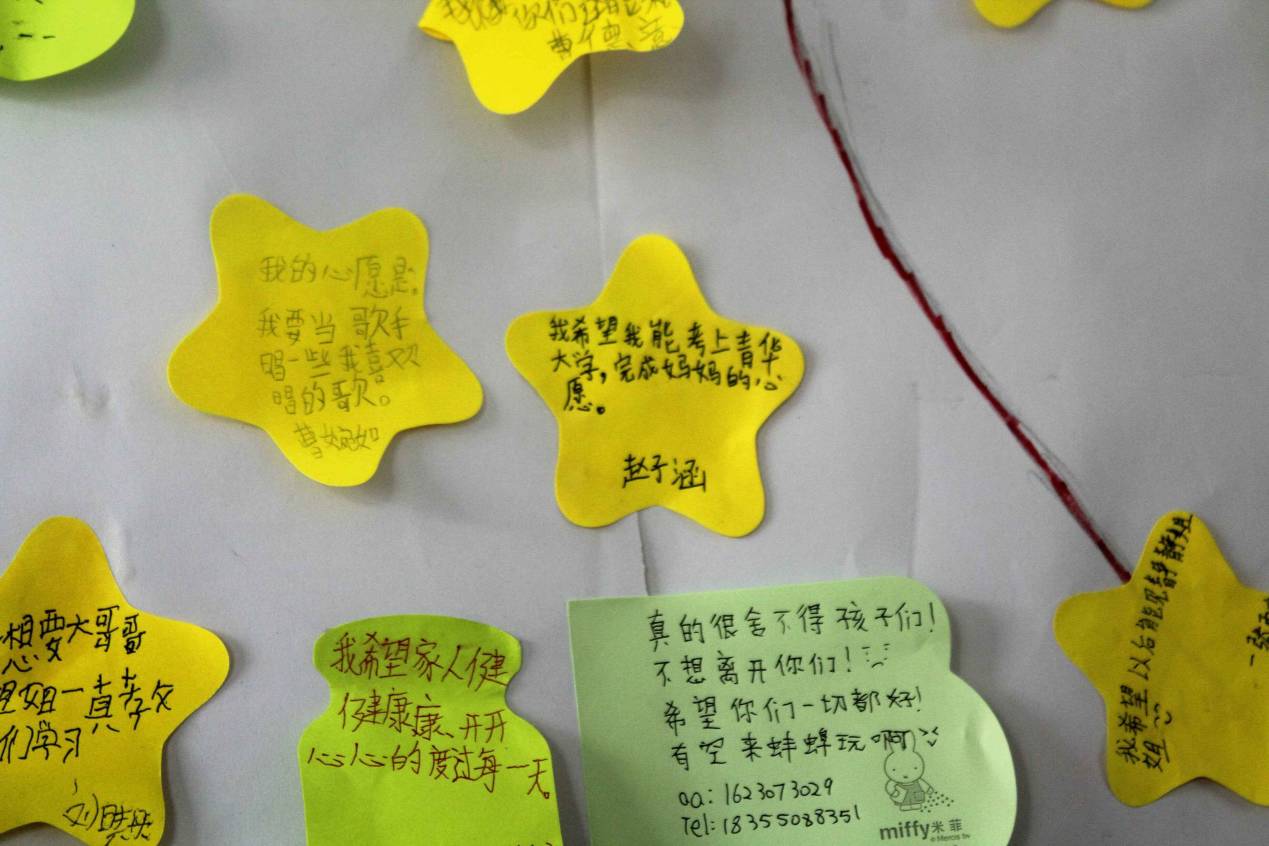 我的心愿是，
我要当歌手
唱一些我喜欢
唱的歌。
曹婉如
我希望我能考上青华
大学，完成妈妈的心
愿。
赵子涵
想要大哥哥
姐一真孝文
们学习
我希望家人健
健康康、开开
心心的度过每一天。
真的很舍不得孩子们！
不想离开你们！
希望你们一切都好！
有空来蚌埠玩啊
QQ：1623073029
Tel：18355088351
miffy米菲
© Mercis bv
我希望以后能跟静静姐
姐
一